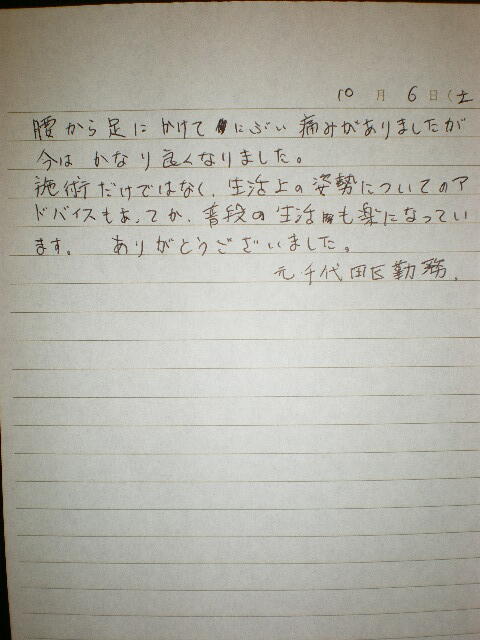 10月6日(土
腰から足にかけてにぶい痛みがありましたが
今はかなり良くなりました。
施術だけではなく、生活上の姿勢についてのア
ドバイスもあってか、普段の生活も楽になってい
ます。 ありがとうございました。
元千代田区勤務.